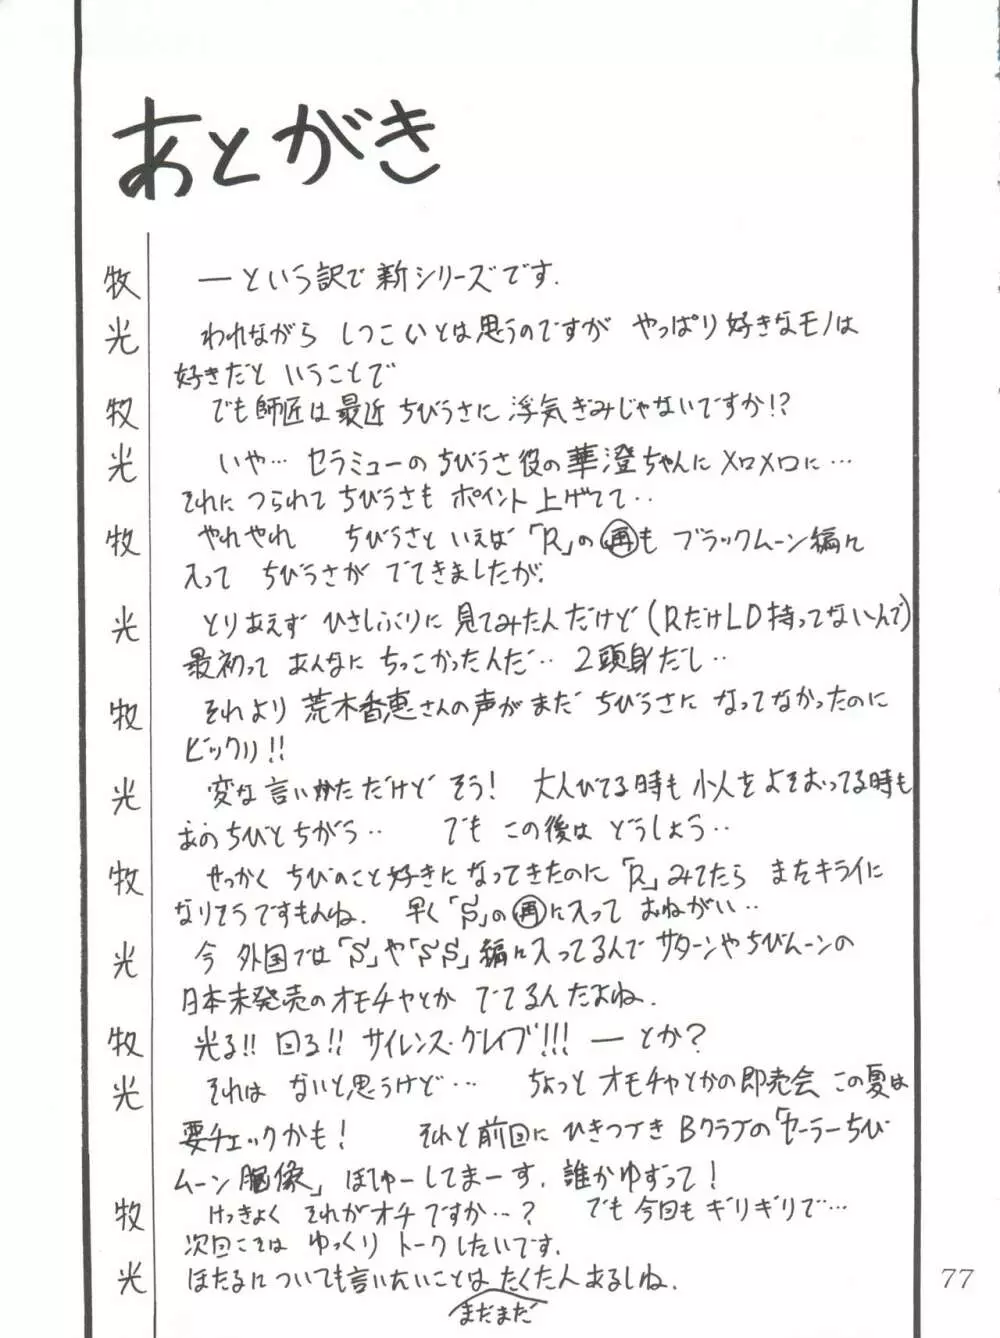 あとがき
牧 ― という訳で新シリーズです.
光 われながら しつこいとは思うのですが やっぱり好きなモノは
好きだと いうことで
牧 でも師匠は最近 ちびうさに 浮気ぎみじゃないですか!?
光 いや… セラミューのちびうさ役の華澄ちゃんにメロメロに…
それに つられて ちびうさも ポイント上げてて‥
牧 やれやれ ちびうさと いえば「R」の再も ブラックムーン編に
入って ちびうさが でてきましたが.
光 とりあえず ひさしぶりに 見てみたんだけど(RだけLD持ってないんで)
最初って あんなに ちっこかったんだ‥ 2頭身だし‥
牧 それより 荒木香恵さんの声が まだ ちびうさに なってなかったのに
ビックリ!!
光 変な言いかただけど そう! 大人びてる時も 小人をよそおってる時も
あのちびとちがう‥ でも この後は どうしよう‥
牧 せっかく ちびのこと好きに なってきたのに「R」みてたら またキライに
なりそうですもんね. 早く「S」の再に入って おねがい‥
光 今 外国では「S」や「SS」編に入ってるんで サターンやちびムーンの
日本未発売のオモチャとか でてるんだよね.
牧 光る!! 回る!! サイレンス・グレイブ!!! ― とか?
光 それは ないと思うけど… ちょっと オモチャとかの即売会 この夏は
要チェックかも! それと前回に ひきつづき Bクラブの「セーラーちび
ムーン胸像」ぼしゅーしてまーす. 誰かゆずって!
牧 けっきょく それがオチですか…? でも今回も ギリギリで…
次回こそは ゆっくり トークしたいです.
光 ほたるに ついても言いたいことは まだまだ たくさん あるしね.
77